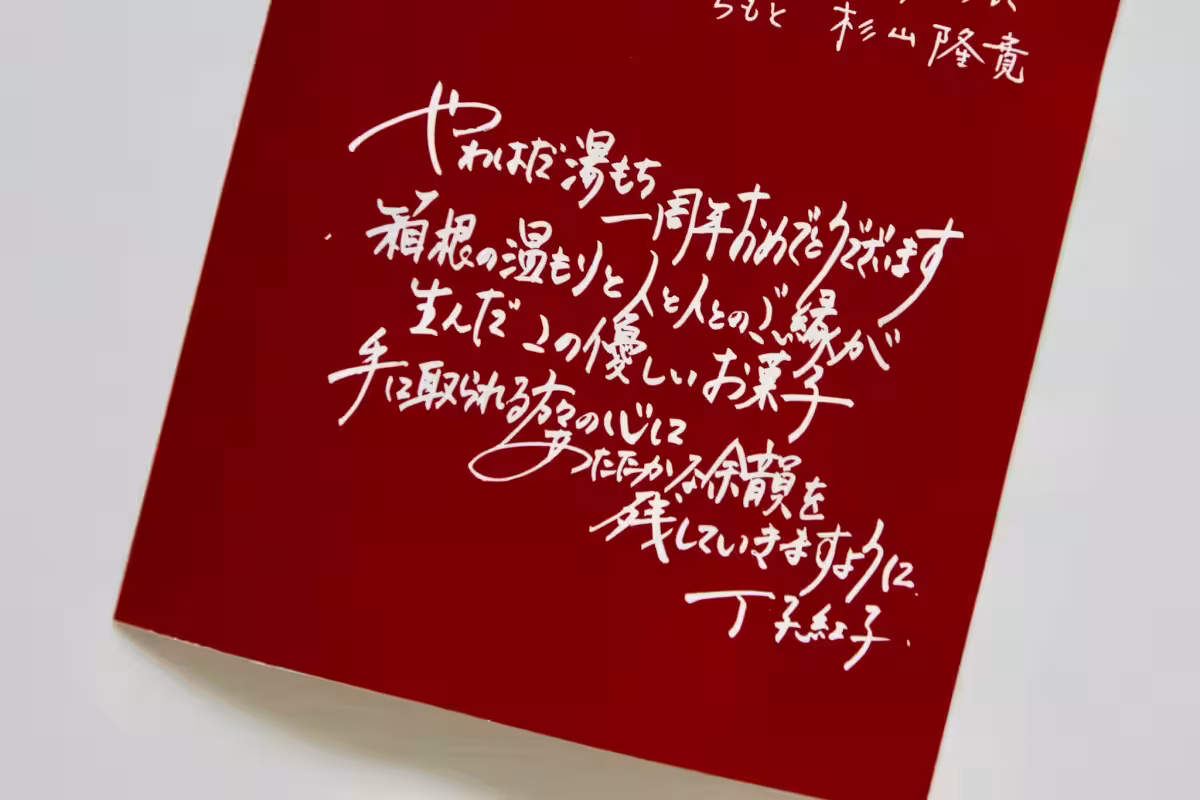 ちもと 杉山隆寛
やわはだ湯もち
一周年おめでとうございます
箱根の温もりと人と人とのご縁が
生んだこの優しいお菓子
手に取られる方々の心に
あたたかな余韻を
残していきますように
丁子紅子